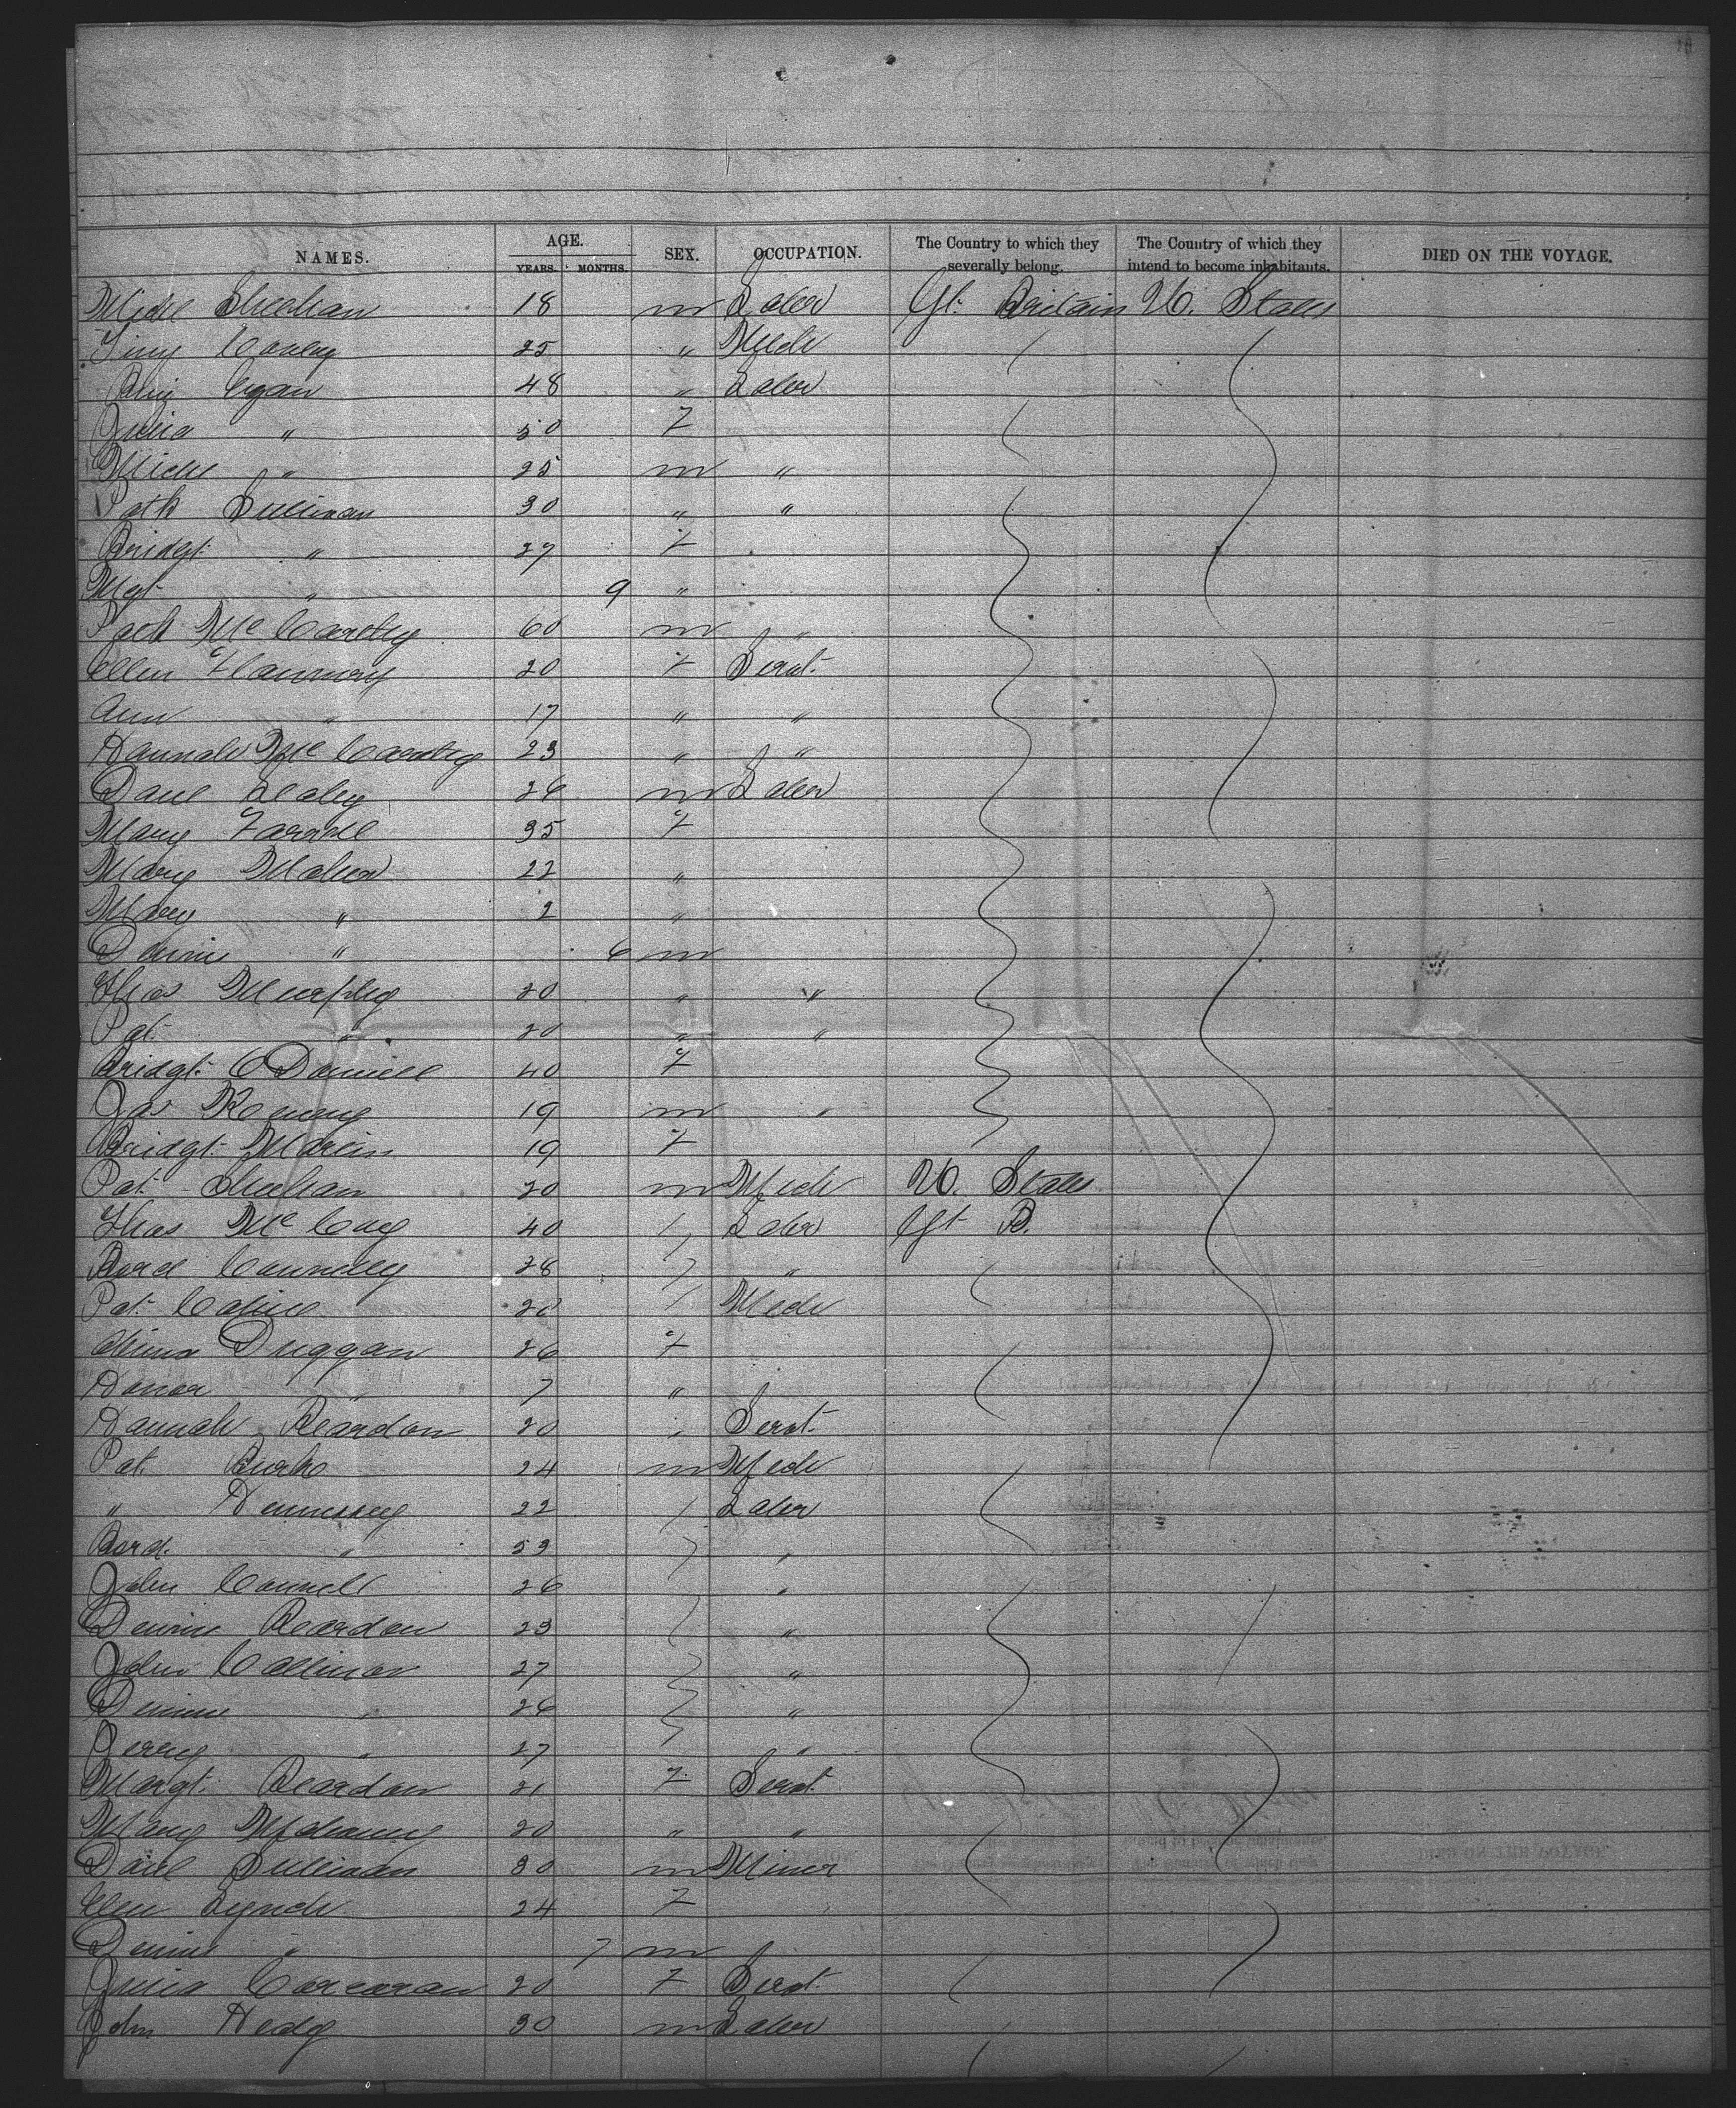 NAMES. AGE. SEX. OCCUPATION. The Country to which they severally belong. The Country of which they intend to become inhabitants. DIED ON THE VOYAGE.
YEARS. MONTHS.
Michl Sheehan 18 m Labr Gt. Britain U. States
25 " Mech
Egan 48 " Labr
Julia " 50 F
Michl " 25 m "
Patk Sullivan 30 " "
Bridgt " 27 F
Mgt " 9 "
Patk McCarthy 60 m "
Ellen Flannery 20 F Servt.
Ann " 17 " "
Hannah McCarthy 23 " "
Danl Healey 26 m Labr
Mary Farrell 35 F
Mary Maher 22 "
Mary " 2 "
Dennis " 6 m
Thos Murphy 20 " "
Pat. " 20 " "
Bridgt. O'Donnell 40 F
Jas 19 m "
Bridgt. Martin 19 F
Pat. Sheehan 20 m Mech U. States
Thos 40 Labr Gt B.
Bard Connelly 28 "
Pat. Collins 20 Mech
Duggan 26 F
Honor " 7 "
Hannah Reardon 20 " Servt.
Pat. Burke 24 m Mech
" Hennessey 22 Labr
Bard. " 53 "
John Connell 26 "
Dennis Reardon 23 "
John 27 "
Dennis " 26 "
Jerry " 27 "
Margt. Reardon 21 F Servt
Mary 20 " "
Danl Sullivan 30 m Miner
Ellen Lynch 24 F
Dennis " 7 m
Julia Corcoran 20 F Servt.
John 30 m Labr